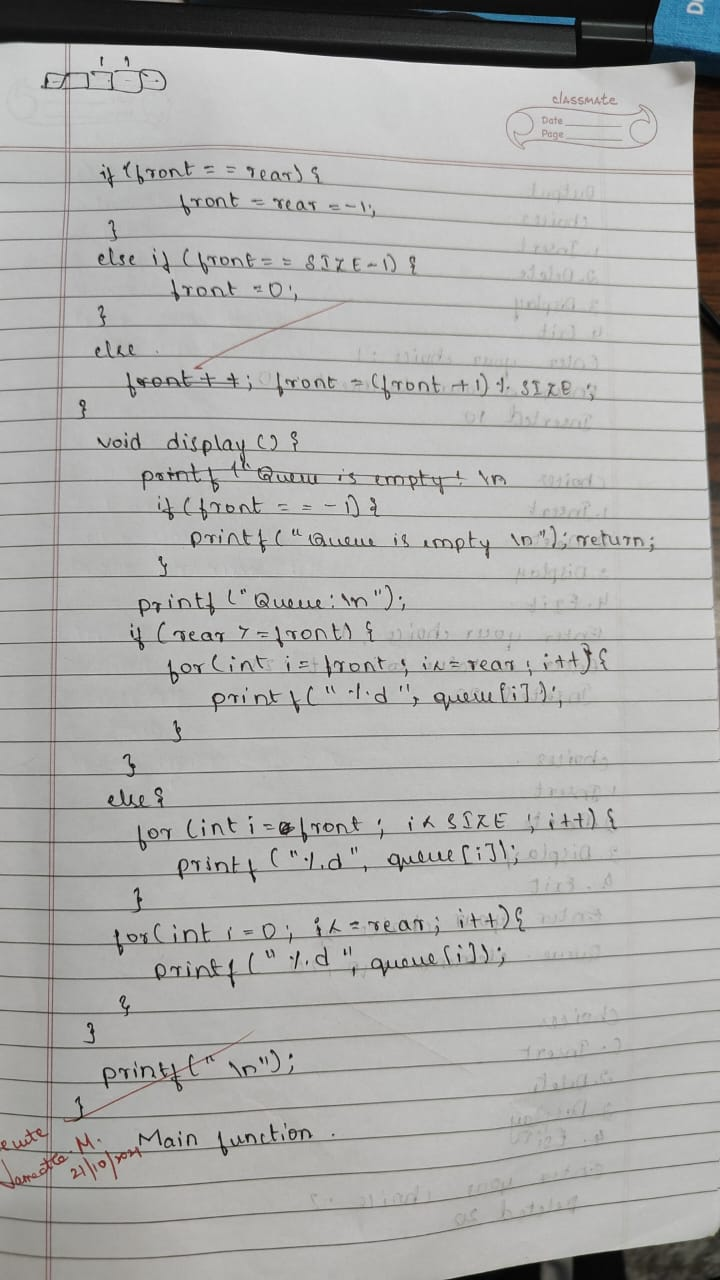 classmate
Date
Page
if (front == rear) {
front = rear = -1;
}
else if (front == SIZE-1) {
front = 0;
}
else
front++; front = (front + 1) % SIZE;
}
void display() {
printf ("Queue is empty! \n
if (front == -1) {
printf("Queue is empty \n"); return;
}
printf ("Queue:\n");
if (rear >= front) {
for(int i = front; i<=rear; i++) {
printf(" %d ", queue[i]);
}
}
else {
for (int i = front; i < SIZE; i++) {
printf ("%d", queue[i]);
}
for(int i = 0; i<=rear; i++) {
printf(" %d ", queue[i]);
}
}
printf(" \n");
}
M.
21/10/2024
Main function.